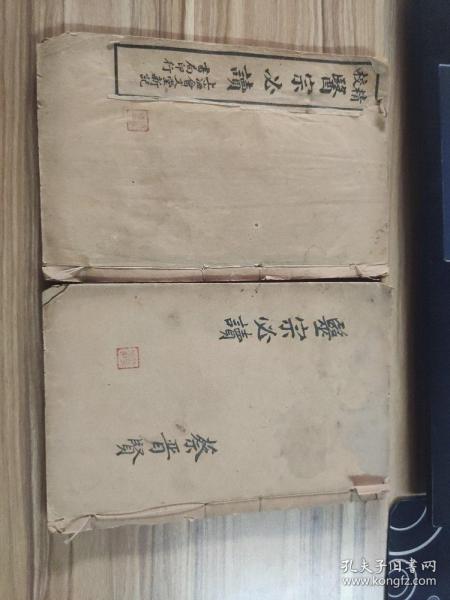 精校
醫宗必讀
上海會文堂新記
書局印行
醫宗必讀
蔡晋賢
孔夫子旧书网
www.kongfz.com